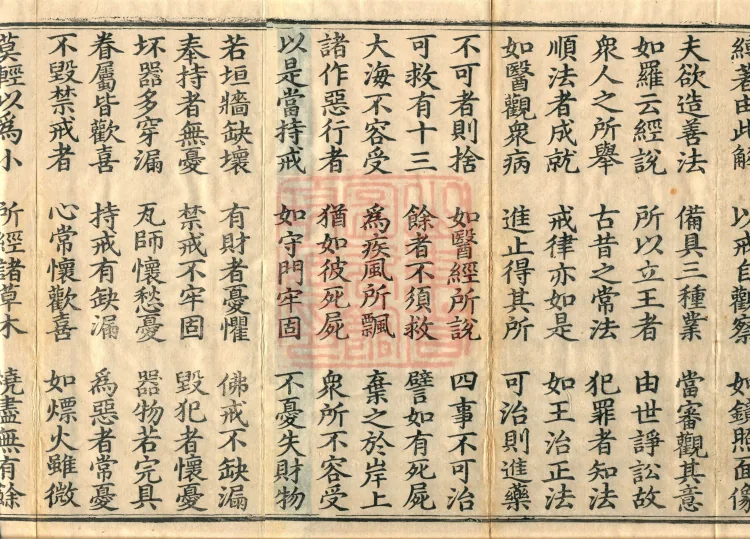 縛著由此解 以戒自觀察 如鏡照面像
夫欲造善法 備具三種業 當審觀其意
如羅云經說 所以立王者 由世諍訟故
衆人之所舉 古昔之常法 犯罪者知法
順法者成就 戒律亦如是 如王治正法
如醫觀衆病 進止得其所 可治則進藥
不可者則捨 如醫經所說 四事不可治
可救有十三 餘者不須救 譬如有死屍
大海不容受 為疾風所飄 棄之於岸上
諸作惡行者 猶如彼死屍 衆所不容受
以是當持戒 如守門牢固 不憂失財物
若垣牆缺壞 有財者憂懼 佛戒不缺漏
奉持者無憂 禁戒不牢固 毀犯者懷憂
坏器多穿漏 瓦師懷愁憂 器物若完具
眷屬皆歡喜 持戒有缺漏 為惡者常憂
不毀禁戒者 心常懷歡喜 如熛火雖微
莫輕以為小 所經諸草木 燒盡無有餘